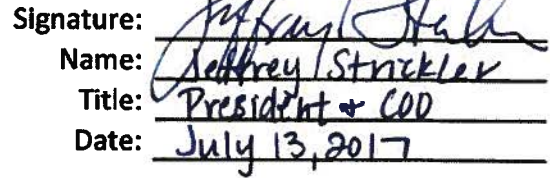 Signature: Jeffrey Strickler
Name: Jeffrey Strickler
Title: President & COO
Date: July 13, 2017